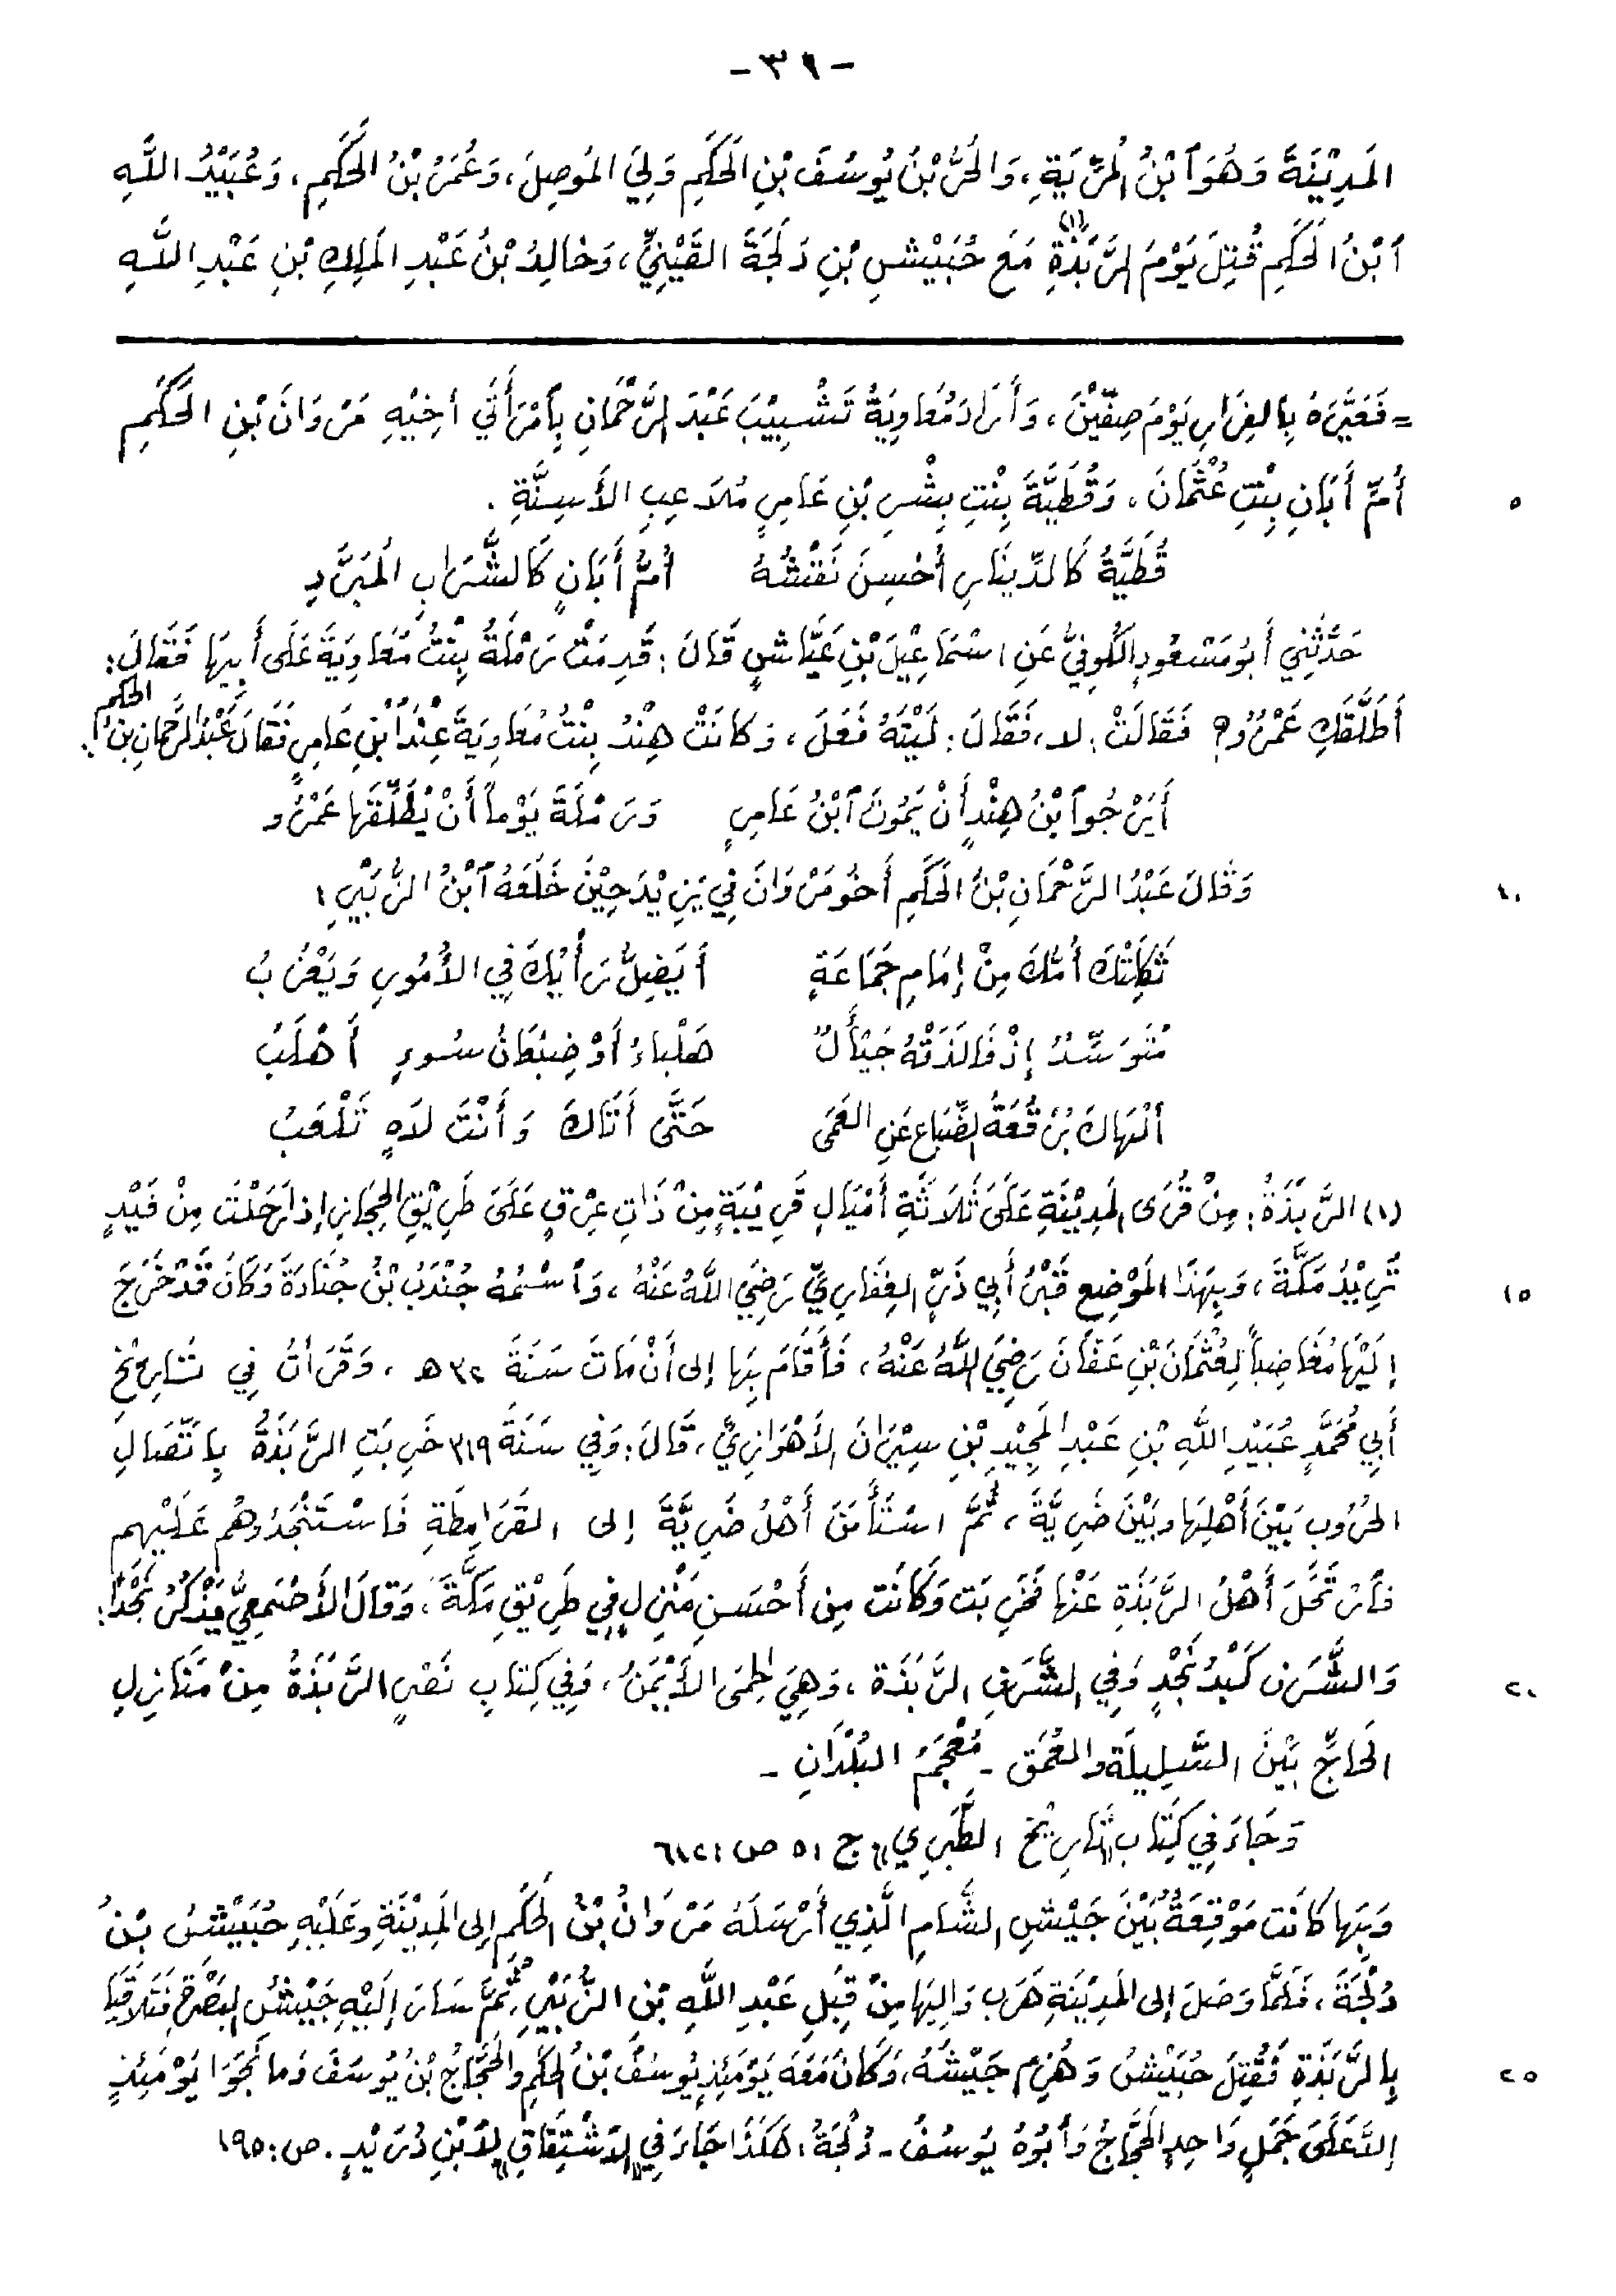 -٣٩-
المَدِيْنَةَ وَهُوَ ٱبْنُ المُرِّيَّةِ، وَالحُرُّ بْنُ يُوسُفَ بْنِ الحَكَمِ وَلِيَ المَوصِلَ، وَعُمَرُ بْنُ الحَكَمِ، وَعُبَيْدُ اللَّهِ
ٱبْنُ الحَكَمِ قُتِلَ يَوْمَ الرَّبَذَةِ (١) مَعَ حُبَيْشِ بْنِ دَلَجَةَ القَيْنِيِّ، وَخَالِدُ بْنُ عَبْدِ المَلِكِ بْنِ عَبْدِ اللَّهِ
= فَعَيَّرَهُ بِالفِرَارِ يَوْمَ صِفِّيْنَ، وَأَرَادَ مُعَاوِيَةُ تَشْبِيْبَ عَبْدَ الرَّحْمَانِ بِٱمْرَأَتَي أخِيْهِ مَرْوَانَ بْنِ الحَكَمِ
٥ أُمِّ أَبَانِ بِنْتِ عُثْمَانَ، وَقُطَيَّةَ بِنْتِ بِشْرِ بْنِ عَامِرٍ مُلَاعِبِ الأَسِنَّةِ .
قُطَيَّةُ كَالدِّينَارِ أُحْسِنَ نَقْشُهُ أُمُّ أَبَانٍ كَالشَّرَابِ المُبَرَّدِ
حَدَّثَنِي أَبُو مَسْعُودٍ الكُوفِيُّ عَنِ اسْمَاعِيْلَ بْنِ عَيَّاشٍ قَالَ: قَدِمَتْ رَمْلَةُ بِنْتُ مُعَاوِيَةَ عَلَى أَبِيهَا فَقَالَ:
أَطَلَّقَكِ عَمْرٌو؟ فَقَالَتْ: لا، فَقَالَ: لَيْتَهُ فَعَلَ، وَكَانَتْ هِنْدُ بِنْتُ مُعَاوِيَةَ عِنْدَ ٱبْنِ عَامِرٍ فَقَالَ عَبْدُ الرَّحْمَانِ بْنُ الحكم:
أَيَرْجُو ٱبْنُ هِنْدٍ أَنْ يَمُوتَ ٱبْنُ عَامِرٍ وَرَمْلَةَ يَوْماً أَنْ يُطَلِّقَهَا عَمْرُو
١٠ وَقَالَ عَبْدُ الرَّحْمَانِ بْنُ الحَكَمِ أَخُو مَرْوَانَ فِي يَزِيْدَ حِيْنَ خَلَعَهُ ٱبْنُ الزُّبَيْرِ:
ثَكِلَتْكَ أُمُّكَ مِنْ إِمَامِ جَمَاعَةٍ أَيَضِلُّ رَأْيُكَ فِي الأُمُورِ وَيَعْزُبُ
مُتَوَسِّدٌ إِذْ فَالَذَتْهُ جَيْأَلٌ هَلْبَاءُ أَوْ ضِبْعَانُ سُوءٍ أَهْلَبُ
أَلْهَاكَ بُرْقُعَةُ الضِّبَاعِ عَنِ العَمَى حَتَّى أَتَاكَ وَأَنْتَ لَاهٍ تَلْعَبُ
(١) الرَّبَذَةُ: مِنْ قُرَى المَدِيْنَةِ عَلَى ثَلَاثَةِ أَمْيَالٍ قَرِيْبَةٍ مِنْ ذَاتِ عِرْقٍ عَلَى طَرِيْقِ الحِجَازِ إِذَا رَحَلْتَ مِنْ فَيْدٍ
١٥ تُرِيْدُ مَكَّةَ، وَبِهَذَا المَوْضِعِ قَبْرُ أَبِي ذَرٍّ الغِفَارِيِّ رَضِيَ اللَّهُ عَنْهُ، وَٱسْمُهُ جُنْدَبُ بْنُ جُنَادَةَ وَكَانَ قَدْ خَرَجَ
إِلَيْهَا مُغَاضِباً لِعُثْمَانَ بْنِ عَفَّانَ رَضِيَ اللَّهُ عَنْهُ، فَأَقَامَ بِهَا إلى أَنْ مَاتَ سَنَةَ ٣٢ هـ ، وَقَرَأتُ فِي تَارِيْخِ
أَبِي مُحَمَّدٍ عُبَيْدِ اللَّهِ بْنِ عَبْدِ المَجِيْدِ بْنِ سِيْرَانَ الأَهْوَازِيِّ، قَالَ: وَفِي سَنَةَ ٣١٩ خَرِبَتِ الرَّبَذَةُ بِاتِّصَالِ
الحُرُوبِ بَيْنَ أَهْلِهَا وبَيْنَ ضَرِيَّةَ، ثُمَّ اسْتَأْمَنَ أَهْلُ ضَرِيَّةَ إلى القَرَامِطَةِ فَاسْتَنْجَدُوهُم عَلَيْهِم
فَٱرْتَحَلَ أَهْلُ الرَّبَذَةِ عَنْهَا فَخَرِبَت وَكَانَت مِن أَحْسَنِ مَنْزِلٍ فِي طَرِيْقِ مَكَّةَ، وَقَالَ الأَصْمَعِيُّ يَذْكُرُ نَجْدًا:
٢٠ وَالشَّرَفُ كَبِدُ نَجْدٍ وَفِي الشَّرَفِ الرَّبَذَة، وَهِيَ الحِمَى الأَيْمَنُ، وَفِي كِتَابِ نَصْرٍ الرَّبَذَةُ مِنْ مَنَازِلِ
الحَاجِّ بَيْنَ السَّلِيلَة والعُمَق - مُعْجَمُ البُلْدَانِ -
وَجَاءَ فِي كِتَابِ "تَارِيْخِ الطَّبَرِي" ج: ٥ ص: ٦١٢
وَبِهَا كَانَت مَوْقِعَةٌ بَيْنَ جَيْشِ الشَّامِ الَّذِي أَرْسَلَهُ مَرْوَانُ بْنُ الحَكَمِ إلى المَدِيْنَةِ وعَلَيْهِ حُبَيْشُ بْنُ
دُلْجَةَ، فَلَمَّا وَصَلَ إلى المَدِيْنَةِ هَرَبَ وَالِيهَا مِنْ قِبَلِ عَبْدِ اللَّهِ بْنِ الزُّبَيْرِ، ثُمَّ سَارَ إلَيْهِ جَيْشُ البَصْرَةِ فَتَلَاقَيَا
٢٥ بِالرَّبَذَةِ فَقُتِلَ حُبَيْشُ وَهُزِمَ جَيْشُهُ، وَكَانَ مَعَهُ يَوْمَئِذٍ يُوسُفُ بْنُ الحَكَمِ والحَجَّاجُ بْنُ يُوسَفَ وَما نَجَوَا يَوْمَئِذٍ
إلَّا عَلَى جَمَلٍ وَاحِدٍ الحَجَّاجُ وَأَبُوهُ يَوسُفُ - دُلْجَةُ: هَكَذَا جَاءَ فِي "الاشْتِقَاقِ" لِابْنِ دُرَيْدٍ . ص: ١٩٥